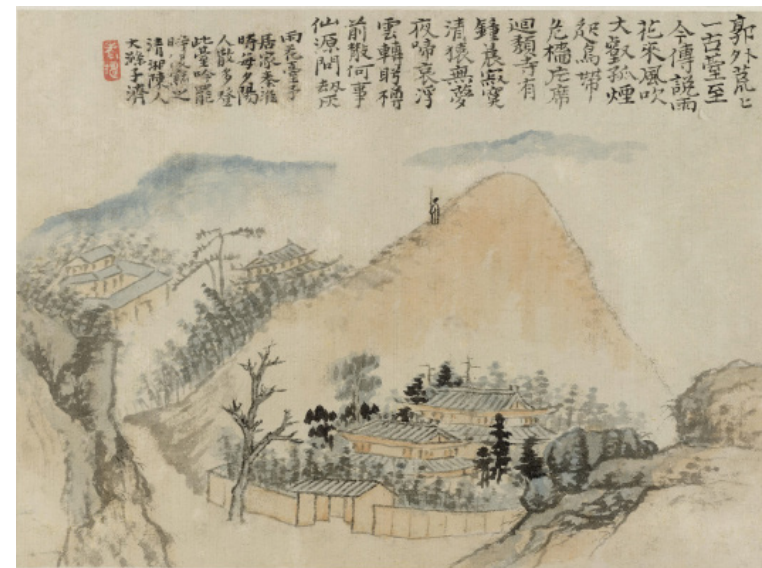 郭外荒〻
一古臺至
今傳說雨
花來風吹
大壑孤煙
起鳥帶
危檣片席
迴頹寺有
鐘晨寂寞
清猿無夢
夜啼哀浮
雲轉盼樽
前散何事
仙源問劫灰
雨花臺予
居家秦淮
時每夕陽
人散多登
此臺吟罷
清湘陳人
大滌子濟